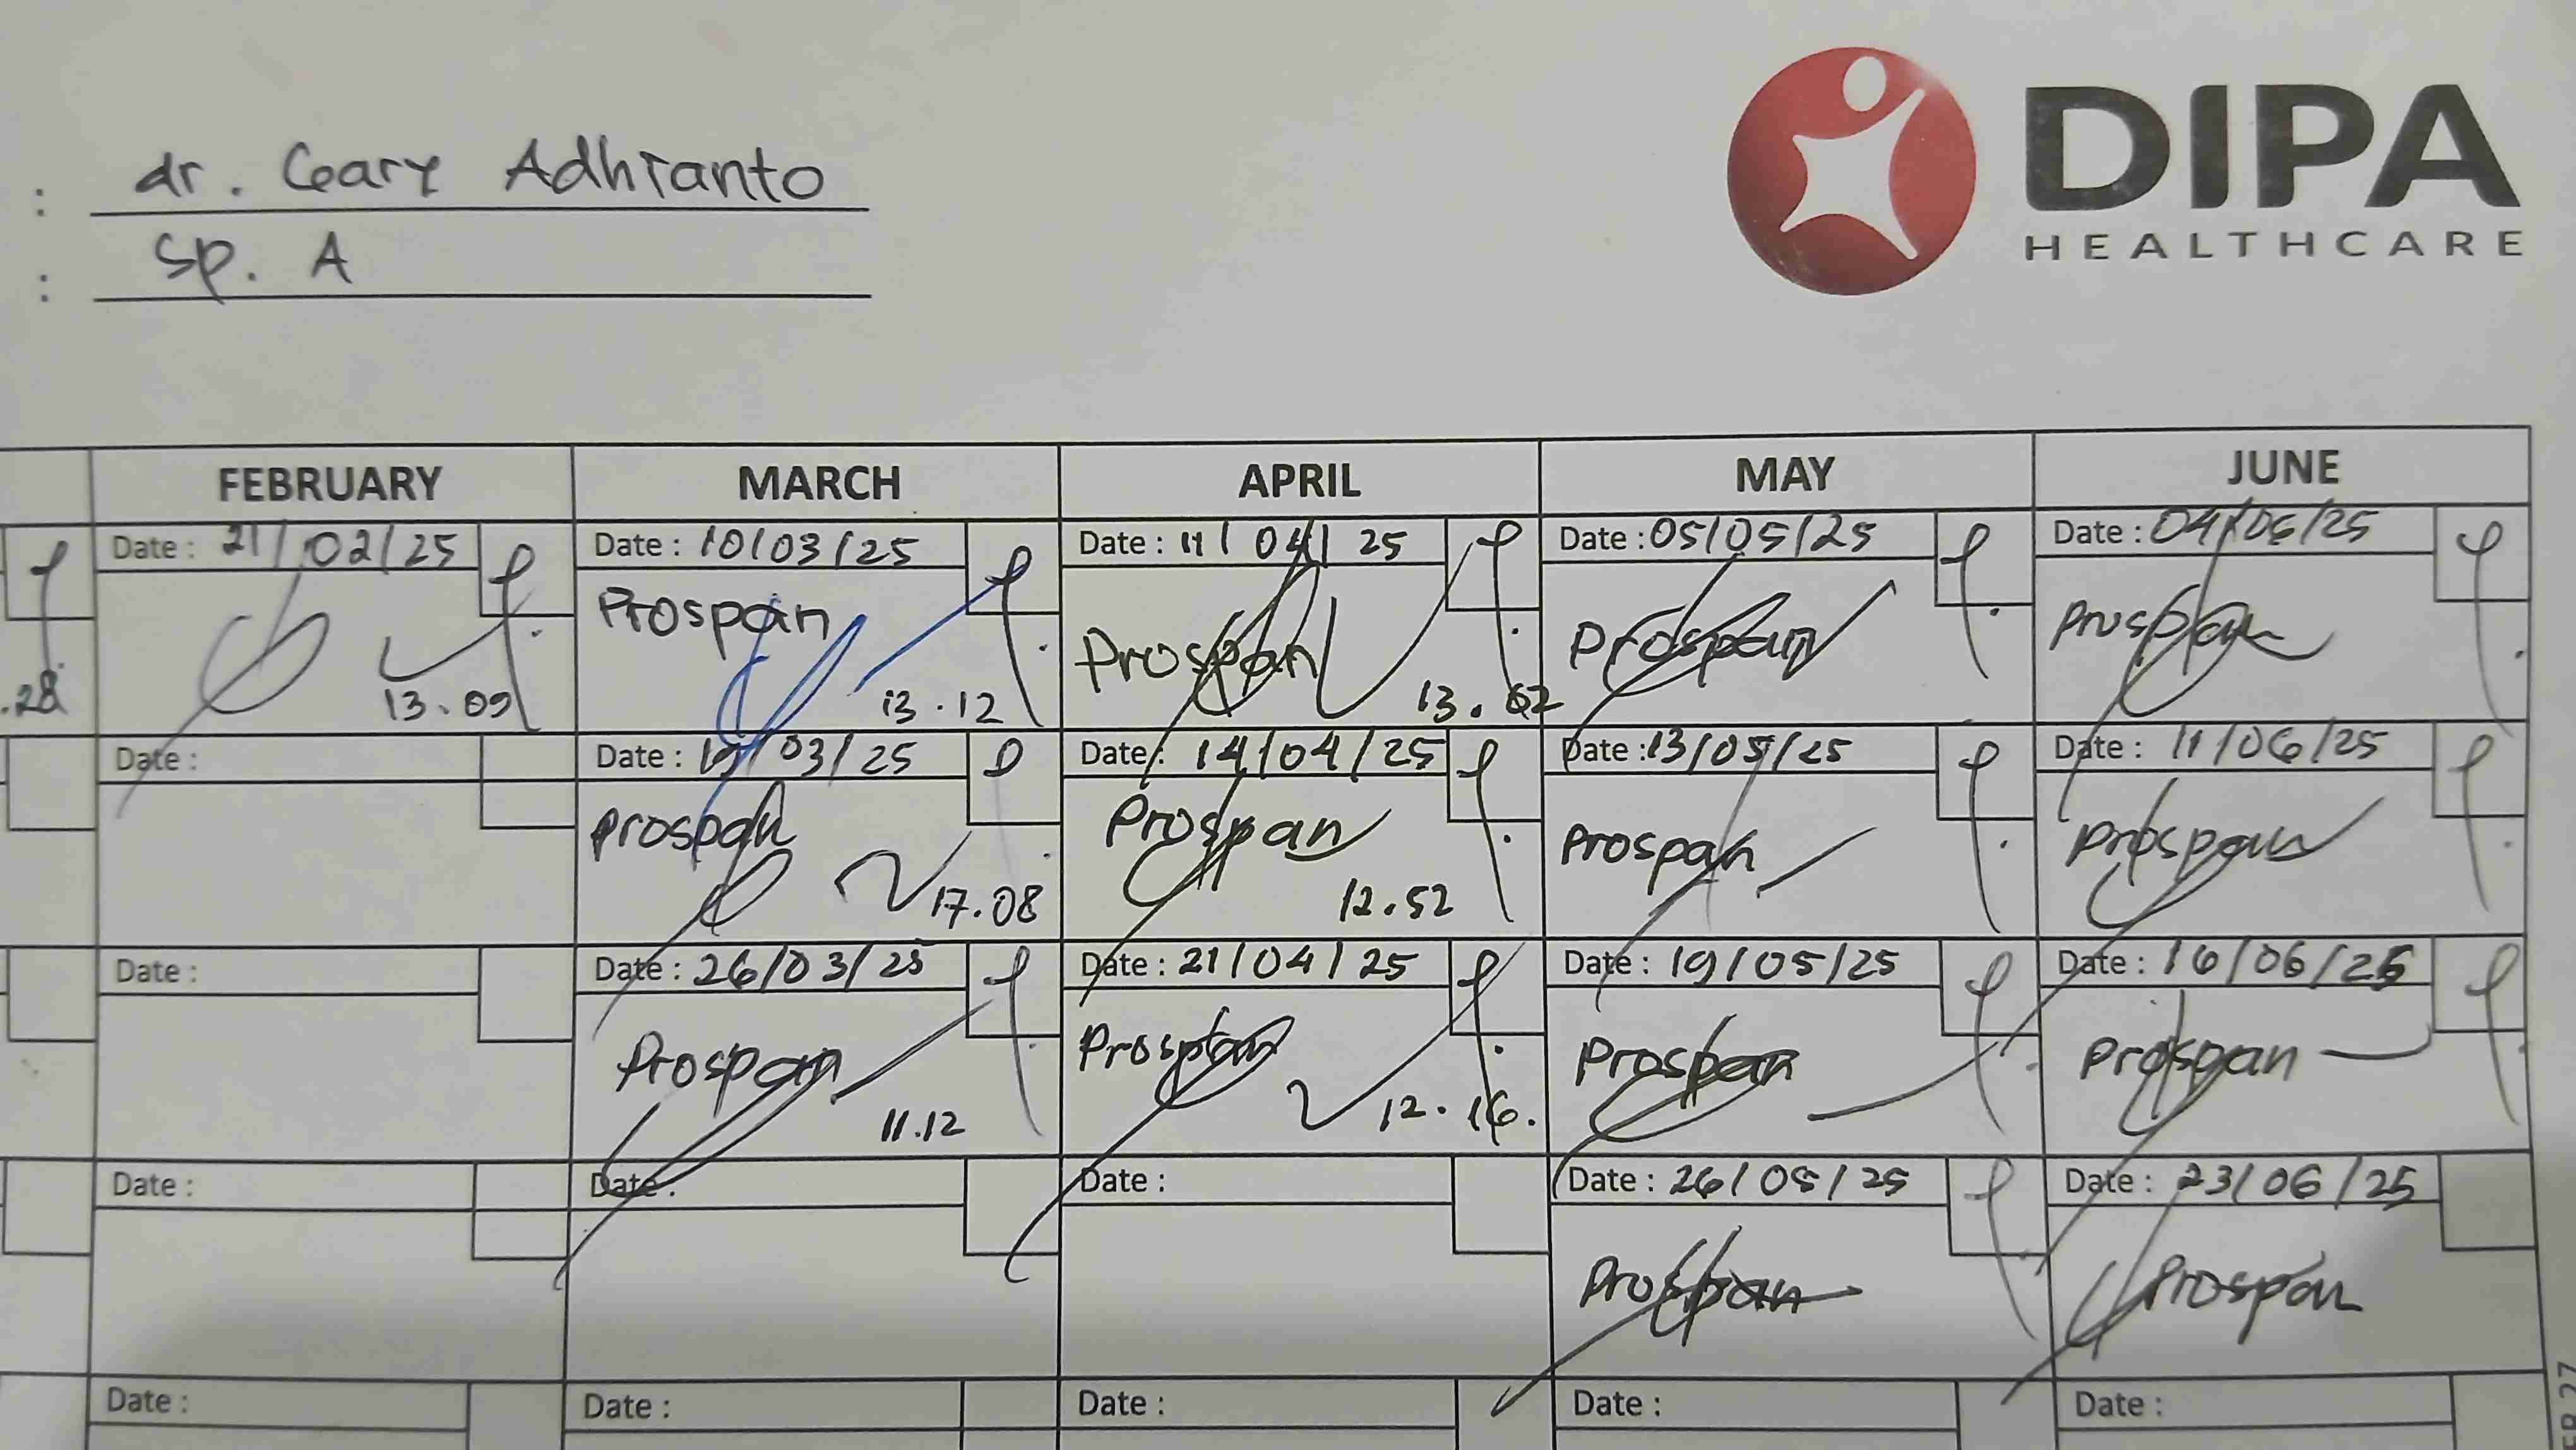 : dr. Geary Adhianto
: Sp. A
DIPA
HEALTHCARE
FEBRUARY MARCH APRIL MAY JUNE
Date : 21/02/25 Date : 10/03/25 Date : 11/04/25 Date : 05/05/25 Date : 04/06/25
Prospan Prospan Prospan Prospan
.28 13.09 13.12 13.02
Date : Date : 19/03/25 Date : 14/04/25 Date : 13/05/25 Date : 11/06/25
Prospan Prospan Prospan Prospan
17.08 12.52
Date : Date : 26/03/25 Date : 21/04/25 Date : 19/05/25 Date : 16/06/25
Prospan Prospan Prospan Prospan
11.12 12.16.
Date : Date : Date : Date : 26/05/25 Date : 23/06/25
Prospan Prospan
Date : Date : Date : Date : Date :